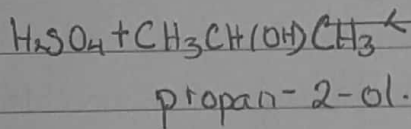 H₂SO₄ + CH₃CH(OH)CH₃
propan-2-ol.